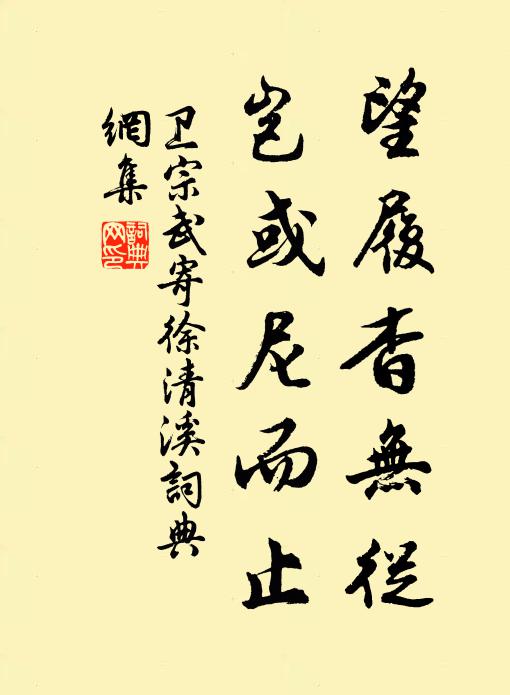 望履杳無從
豈或尼而止
卫宗武寄徐清溪詞典
網集
詞典網印